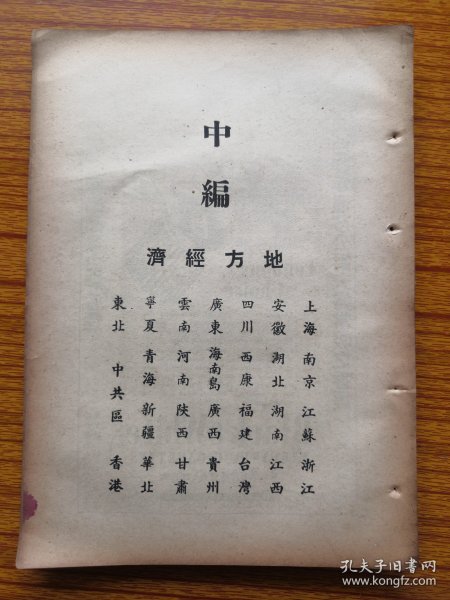 中編
地方經濟
上海 南京 江蘇 浙江
安徽 湖北 湖南 江西
四川 西康 福建 台灣
廣東 海南島 廣西 貴州
雲南 河南 陝西 甘肅
寧夏 青海 新疆 華北
東北 中共區 香港
孔夫子旧书网
www.kongfz.com